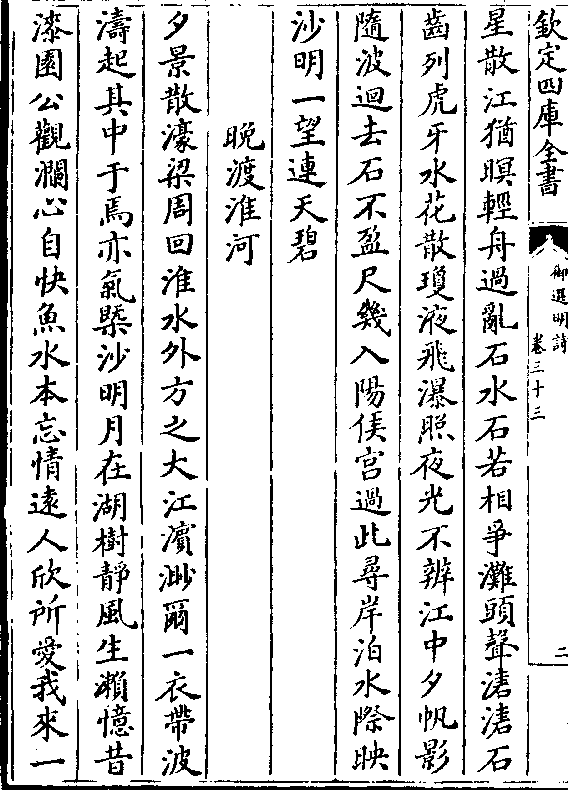 欽定四庫全書
御選明詩
卷三十三
二
星散江猶暝輕舟過亂石水石若相爭灘頭聲濤濤石
齒列虎牙水花散瓊液飛瀑照夜光不辨江中夕帆影
隨波迴去石不盈尺幾入陽侯宮過此尋岸泊水際映
沙明一望連天碧
晚渡淮河
夕景散濠梁周回淮水外方之大江濱渺爾一衣帶波
濤起其中于焉亦氣槩沙明月在湖樹靜風生瀨憶昔
漆園公觀瀾心自快魚水本忘情逺人欣所愛我來一